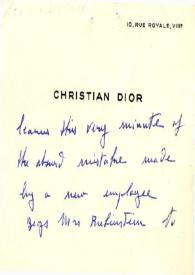 10, RUE ROYALE, VIIIe
CHRISTIAN DIOR
learns this very minute of
the absurd mistake made
by a new employee
begs Mrs Rubinstein to